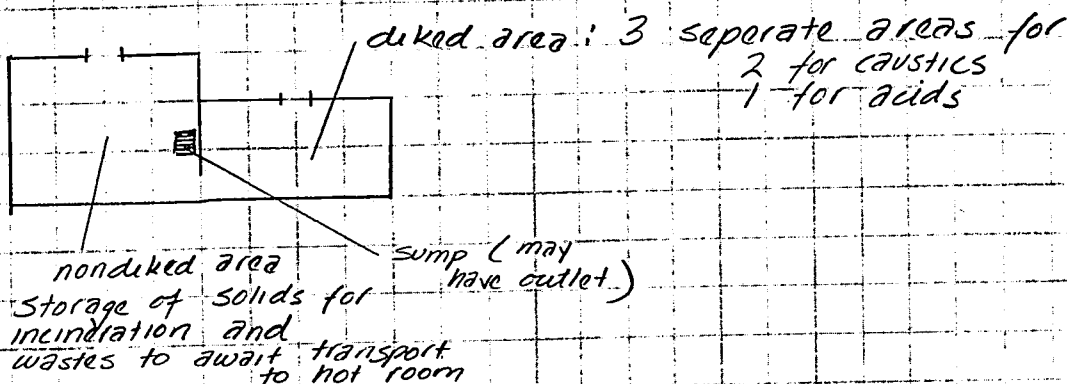 diked area: 3 seperate areas for
2 for caustics
1 for acids
sump (may
have outlet)
nondiked area
Storage of solids for
incindration and
wastes to await transport
to hot room